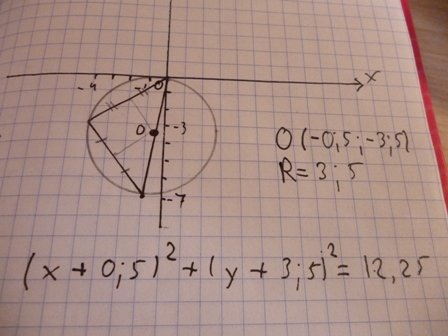 x
-4
-1
0
0
-3
O (-0;5; -3;5)
R = 3;5
-7
(x + 0;5)² + (y + 3;5)² = 12,25